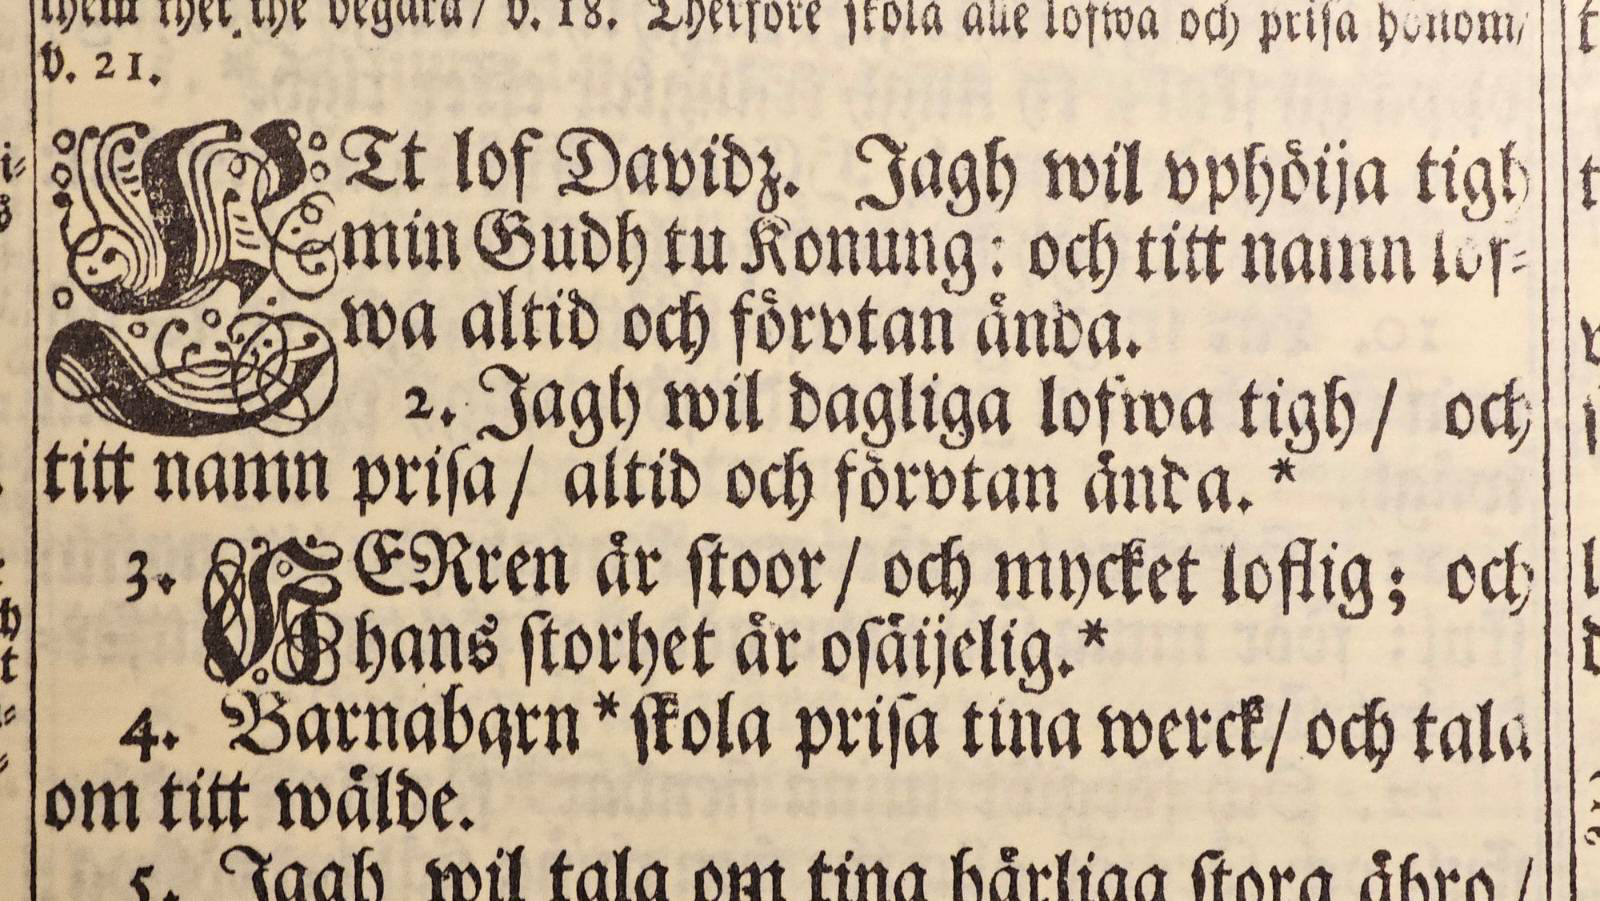 them thet the begära / v. 18. Therföre ſkola alle lofwa och priſa honom /
v. 21.
ETt lof Davidz. Jagh wil vphöija tigh
min Gudh tu Konung: och titt namn lof-
wa altid och förvtan ända.
2. Jagh wil dagliga lofwa tigh / och
titt namn priſa / altid och förvtan ända.*
3. HERren är ſtoor / och mycket loflig; och
hans ſtorhet är oſäijelig.*
4. Barnabarn* ſkola priſa tina werck / och tala
om titt wälde.
5. Jagh wil tala om tina härliga ſtora ähro /